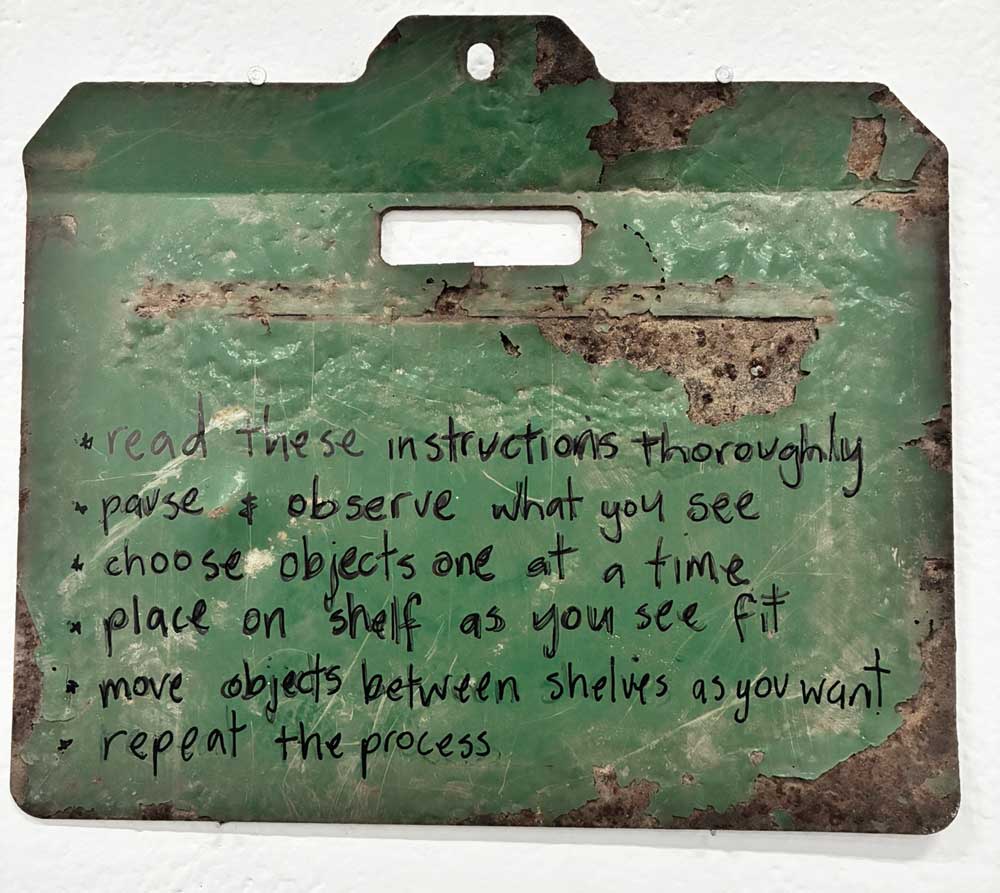 * read these instructions thoroughly
* pause & observe what you see
* choose objects one at a time
* place on shelf as you see fit
* move objects between shelves as you want
* repeat the process